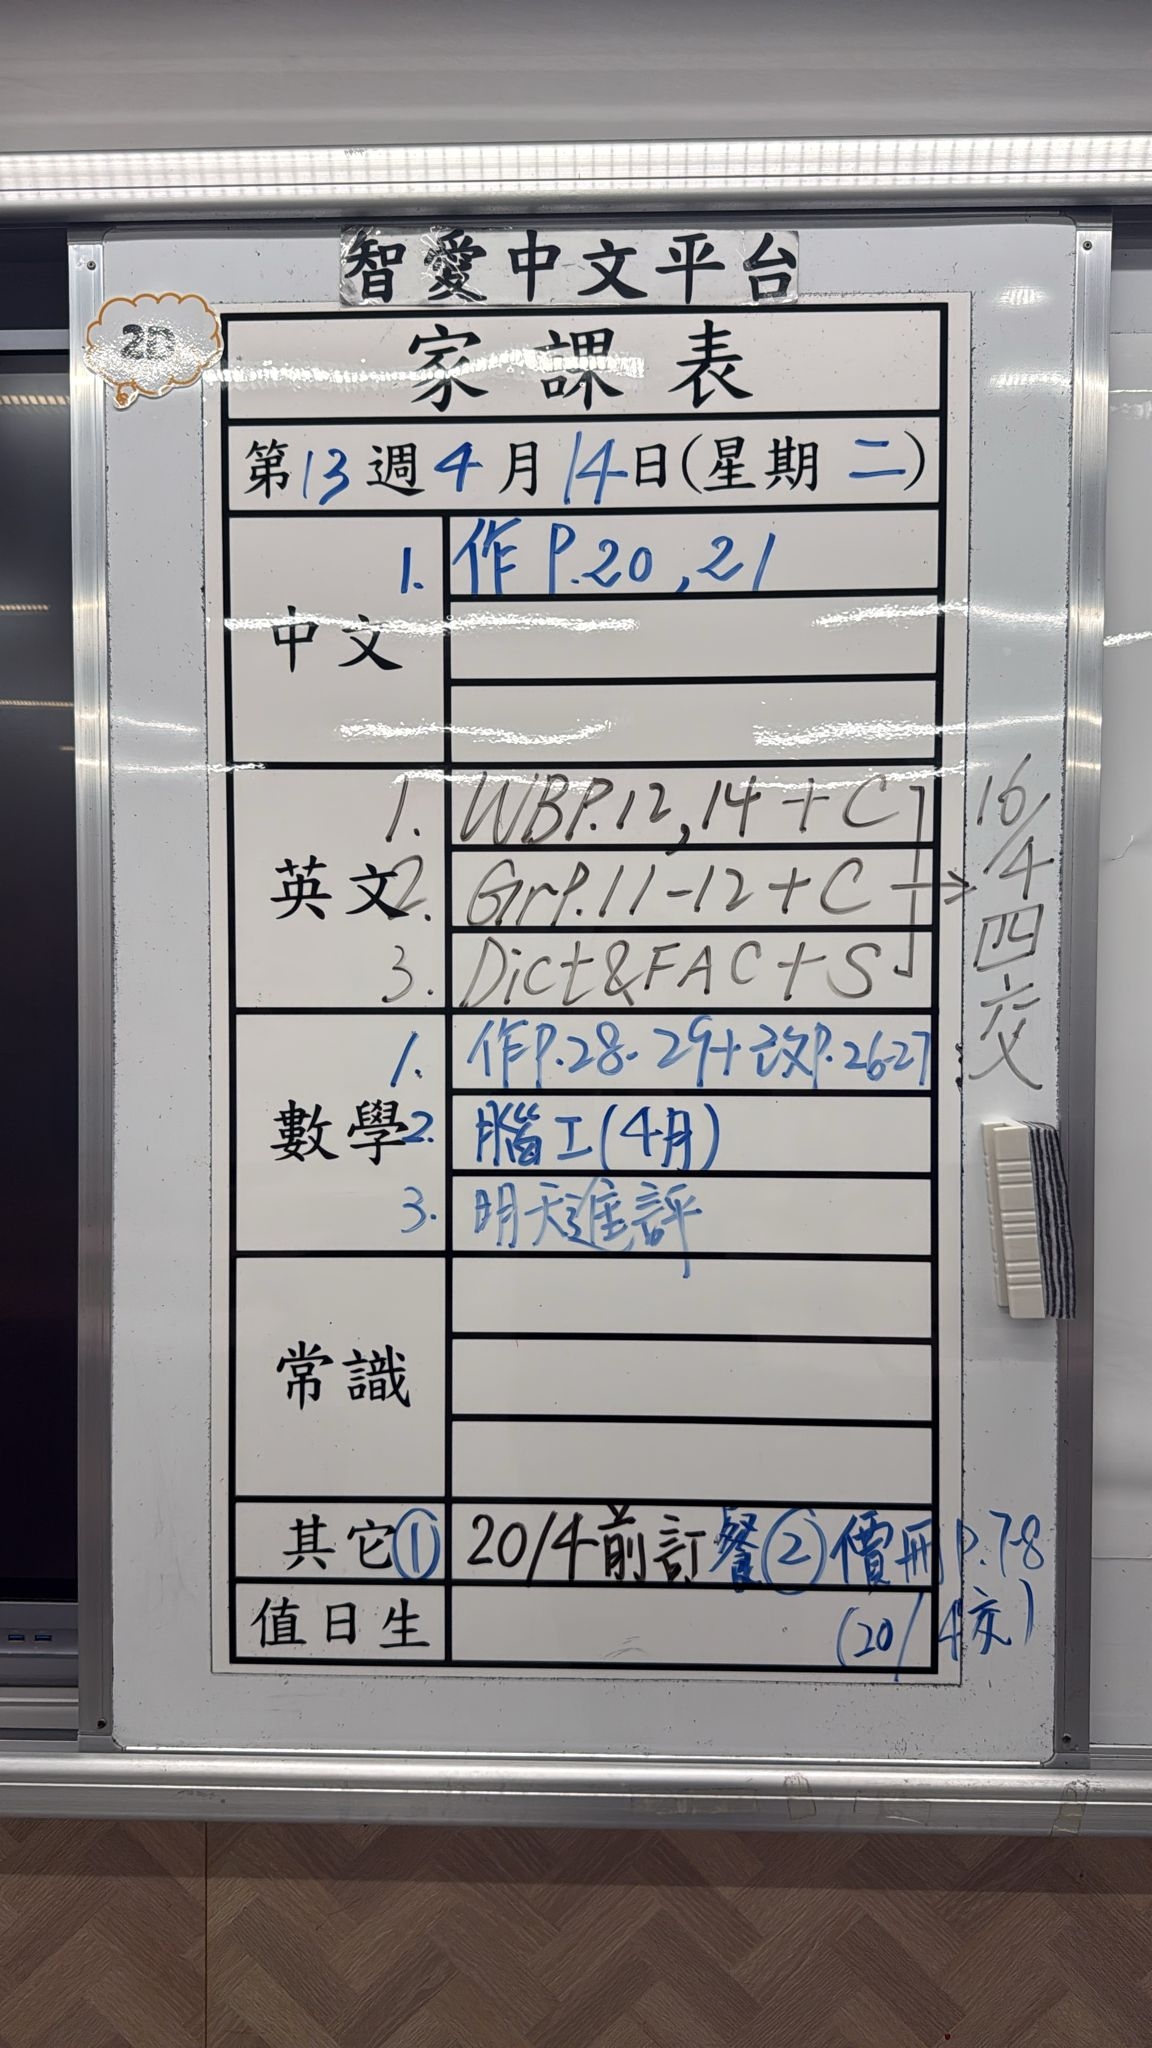 智愛中文平台
2D
家課表
第13週4月14日(星期二)
中文
1. 作P.20,21
英文
1. WBP.12,14+C
2. GrP.11-12+C
3. Dict&FAC+S
16/4四交
數學
1. 作P.28-29+改P.26-27
2. 腦工(4月)
3. 明天進評
常識
其它 ① 20/4前訂餐 ② 價冊P.7-8
(20/4交)
值日生